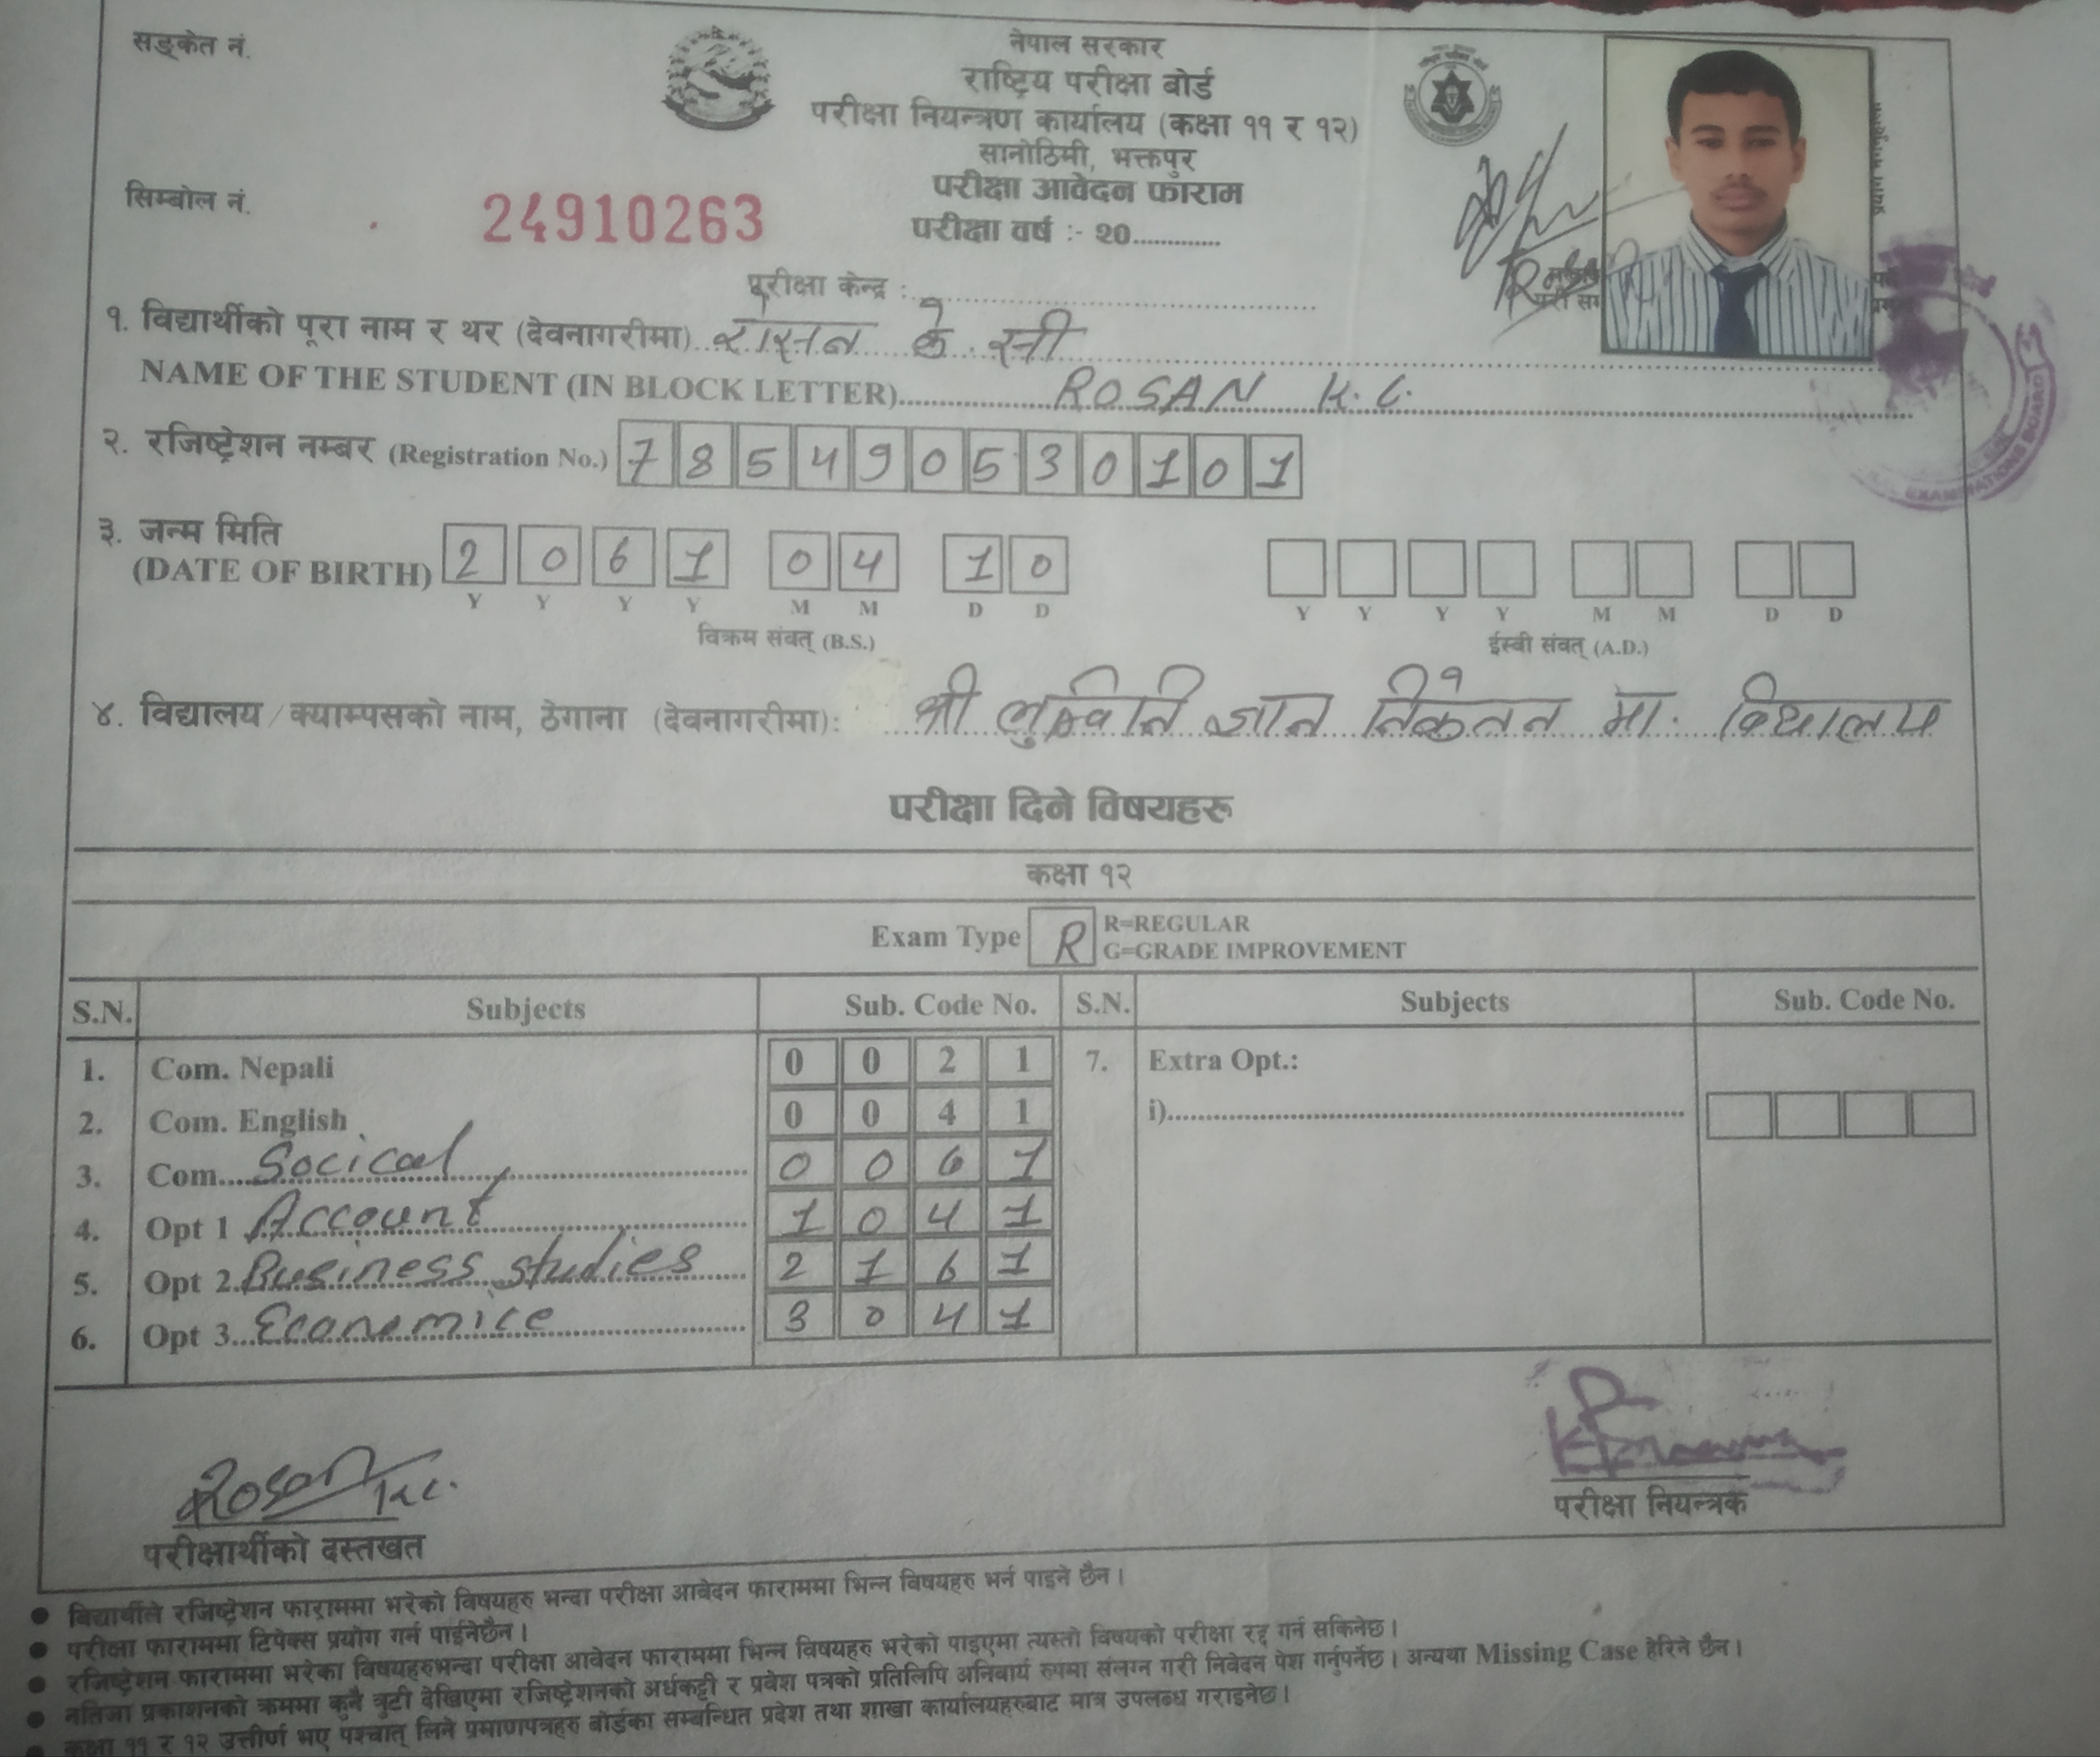 सङ्केत नं.
नेपाल सरकार
राष्ट्रिय परीक्षा बोर्ड
परीक्षा नियन्त्रण कार्यालय (कक्षा ११ र १२)
सानोठिमी, भक्तपुर
परीक्षा आवेदन फाराम
सिम्बोल नं. 24910263
परीक्षा वर्ष :- २०.............
परीक्षा केन्द्र :
१. विद्यार्थीको पूरा नाम र थर (देवनागरीमा) रोसन के सी
NAME OF THE STUDENT (IN BLOCK LETTER) ROSAN K.C.
२. रजिष्ट्रेशन नम्बर (Registration No.) 785490530101
३. जन्म मिति
(DATE OF BIRTH) 2061 04 10
Y Y Y Y M M D D Y Y Y Y M M D D
विक्रम संवत् (B.S.) ईस्वी संवत् (A.D.)
४. विद्यालय/क्याम्पसको नाम, ठेगाना (देवनागरीमा): श्री लुम्बिनि ज्ञान निकेतन मा. विद्यालय
परीक्षा दिने विषयहरू
कक्षा १२
Exam Type R R=REGULAR
G=GRADE IMPROVEMENT
S.N. Subjects Sub. Code No. S.N. Subjects Sub. Code No.
1. Com. Nepali 0 0 2 1 7. Extra Opt.:
2. Com. English 0 0 4 1 i)
3. Com. Socical 0 0 6 1
4. Opt 1 Account 1 0 4 1
5. Opt 2 Business studies 2 1 6 1
6. Opt 3 Economice 3 0 4 1
Rosan K.C.
परीक्षार्थीको दस्तखत
परीक्षा नियन्त्रक
EXAMINATIONS BOARD
● विद्यार्थीले रजिष्ट्रेशन फाराममा भरेको विषयहरु भन्दा परीक्षा आवेदन फाराममा भिन्न विषयहरु भर्न पाइने छैन।
● परीक्षा फाराममा टिपेक्स प्रयोग गर्न पाईनेछैन।
● रजिष्ट्रेशन फाराममा भरेका विषयहरुभन्दा परीक्षा आवेदन फाराममा भिन्न विषयहरु भरेको पाइएमा त्यस्तो विषयको परीक्षा रद्द गर्न सकिनेछ।
● नतिजा प्रकाशनको क्रममा कुनै त्रुटी देखिएमा रजिष्ट्रेशनको अर्धकट्टी र प्रवेश पत्रको प्रतिलिपि अनिवार्य रुपमा संलग्न गरी निवेदन पेश गर्नुपर्नेछ। अन्यथा Missing Case हेरिने छैन।
● कक्षा ११ र १२ उत्तीर्ण भए पश्चात् लिने प्रमाणपत्रहरु बोर्डका सम्बन्धित प्रदेश तथा शाखा कार्यालयहरुबाट मात्र उपलब्ध गराइनेछ।